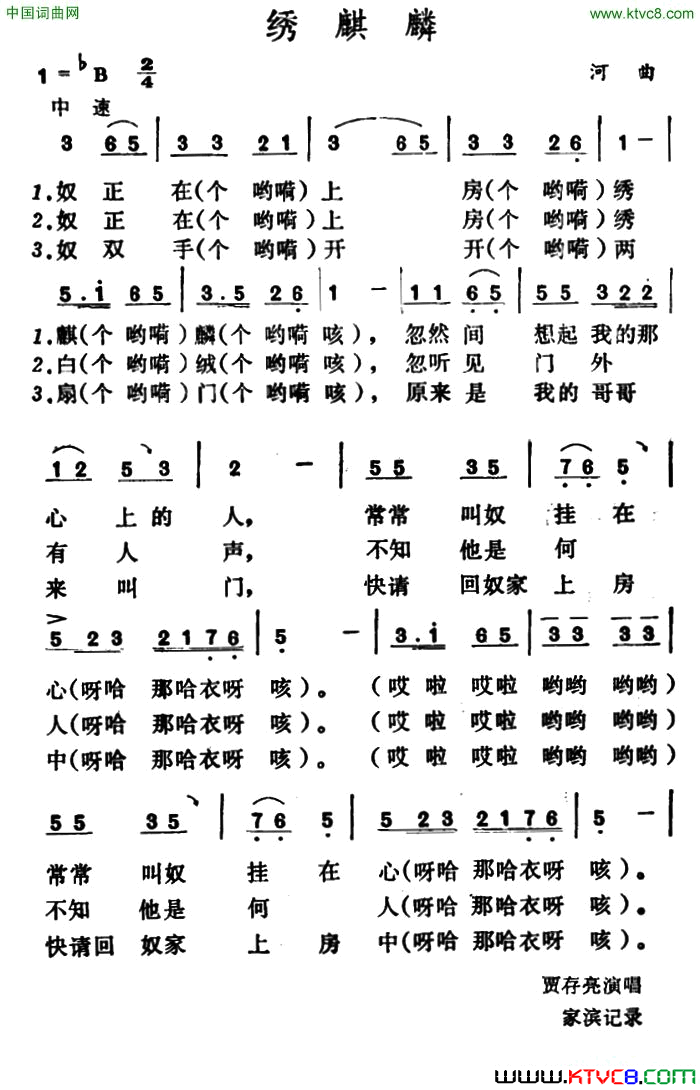 中国词曲网 www.ktvc8.com
绣麒麟
1=♭B 2/4 河曲
中速
3 65 | 33 21 | 3 65 | 33 26 | 1 — |
1.奴正在(个 哟嗬)上 房(个 哟嗬)绣
2.奴正在(个 哟嗬)上 房(个 哟嗬)绣
3.奴双手(个 哟嗬)开 开(个 哟嗬)两
5.i 65 | 3.5 26 | 1 — | 11 65 | 55 322 |
1.麒(个 哟嗬)麟(个 哟嗬 咳)，忽然间 想起我的那
2.白(个 哟嗬)绒(个 哟嗬 咳)，忽听见 门外
3.扇(个 哟嗬)门(个 哟嗬 咳)，原来是 我的哥哥
12 53 | 2 — | 55 35 | 76 5 |
心上的人， 常常 叫奴 挂在
有人声， 不知 他是 何
来叫门， 快请 回奴家 上房
> 
5 23 2176 | 5 — | 3.i 65 | 33 33 |
心(呀哈 那哈衣呀 咳)。 (哎啦 哎啦 哟哟 哟哟)
人(呀哈 那哈衣呀 咳)。 (哎啦 哎啦 哟哟 哟哟)
中(呀哈 那哈衣呀 咳)。 (哎啦 哎啦 哟哟 哟哟)
55 35 | 76 5 | 5 23 2176 | 5 — |
常常 叫奴 挂在 心(呀哈 那哈衣呀 咳)。
不知 他是 何 人(呀哈 那哈衣呀 咳)。
快请回 奴家 上房 中(呀哈 那哈衣呀 咳)。
贾存亮演唱
家滨记录
www.KTVC8.com